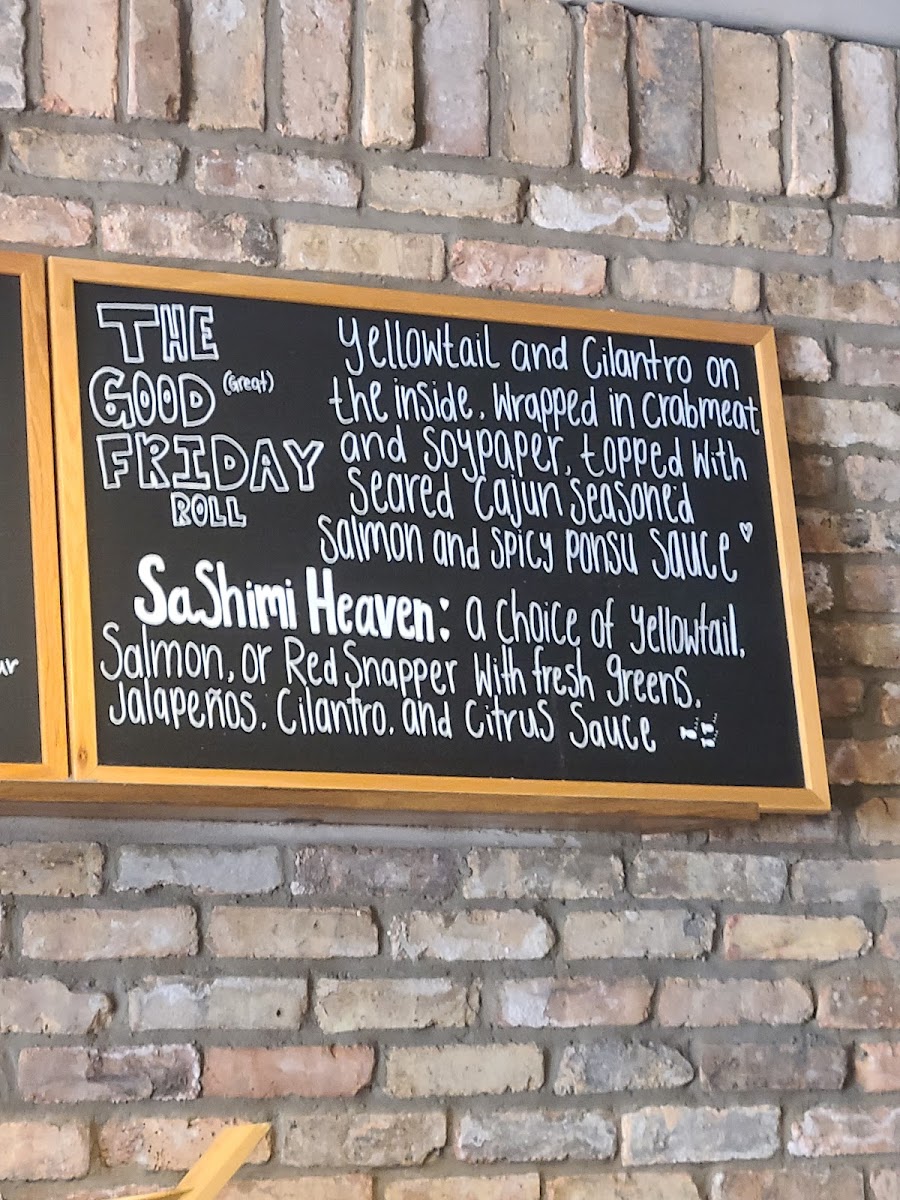 THE
GOOD (Great)
FRIDAY
ROLL
Yellowtail and Cilantro on
the inside, Wrapped in Crabmeat
and Soypaper, topped With
Seared Cajun Seasone'd
Salmon and Spicy Ponsu Sauce
Sashimi Heaven: a Choice of Yellowtail,
Salmon, or Red Snapper With fresh greens,
Jalapeños, Cilantro, and Citrus Sauce
ur